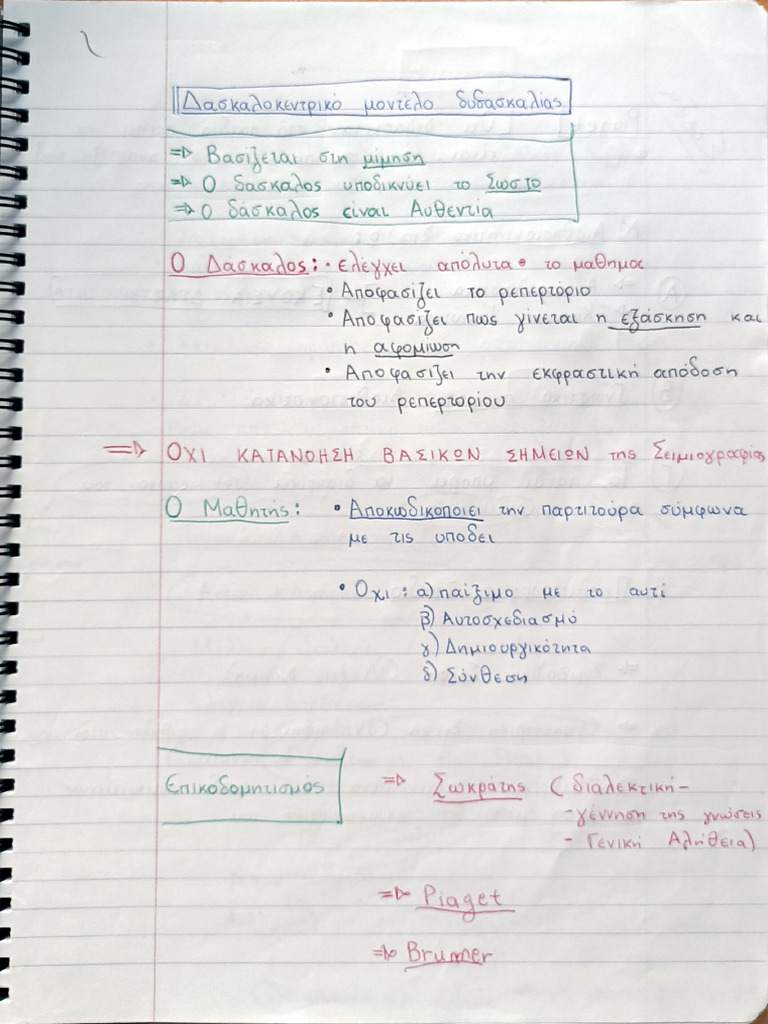 Δασκαλοκεντρικό μοντέλο δυδασκαλίας
⇒ Βασίζεται στη μίμηση
⇒ Ο δάσκαλος υποδικνύει το Σωστο
⇒ Ο δάσκαλος είναι Αυθεντία
Ο Δάσκαλος: • Ελέγχει απόλυτα • το μαθημα
• Αποφασίζει το ρεπερτόριο
• Αποφασίζει πως γίνεται η εξάσκηση και
η αφομίωση
• Αποφασιζει την εκφραστική απόδοση
του ρεπερτορίου
⇒ ΟΧΙ ΚΑΤΑΝΟΗΣΗ ΒΑΣΙΚΩΝ ΣΗΜΕΙΩΝ της Σειμιογραφίας
Ο Μαθητής: • Αποκωδικοποιει την παρτιτούρα σύμφωνα
με τις υποδει
• Οχι : α) παίξιμο με το αυτί
β) Αυτοσχεδιασμό
γ) Δημιουργικότητα
δ) Σύνθεση
Επικοδομητισμός ⇒ Σωκράτης (διαλεκτική -
- γέννηση της γνώσεις
- Γενική Αλήθεια)
⇒ Piaget
⇒ Brunner